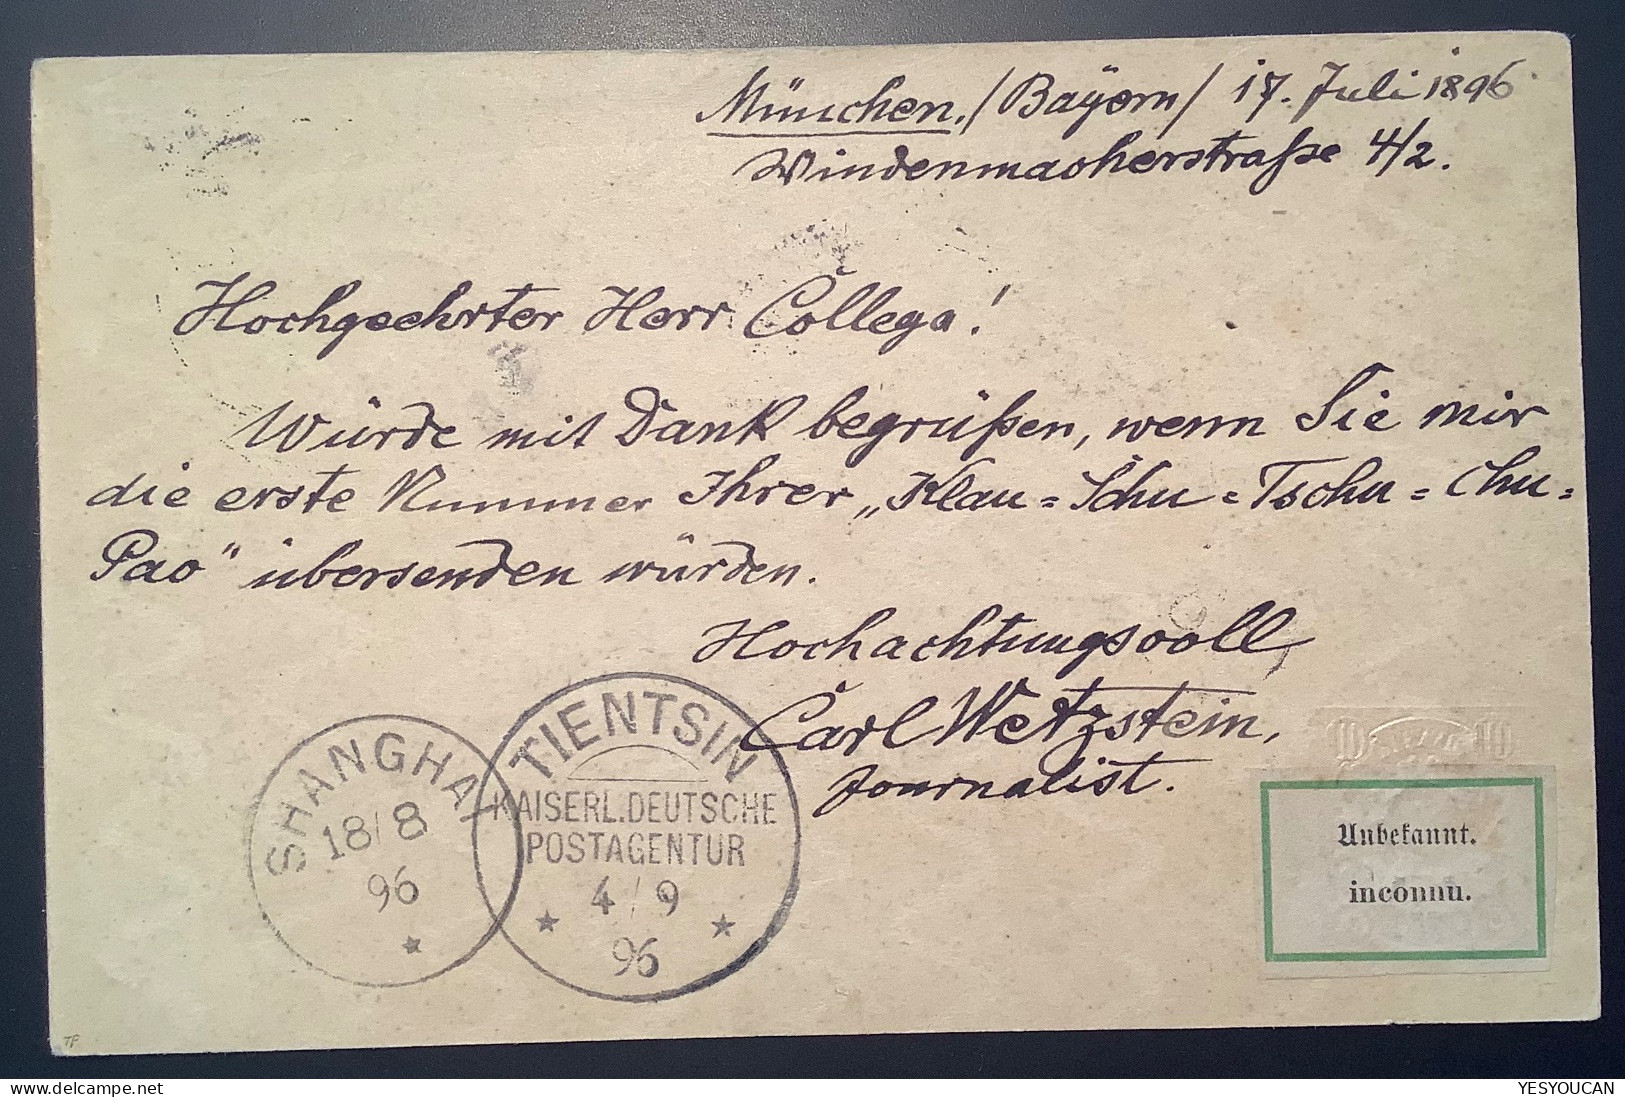 München./Bayern/ 17. Juli 1896.
Windenmacherstraße 4/2.
Hochgeehrter Herr Collega!
Würde mit Dank begrüßen, wenn Sie mir
die erste Nummer Ihrer „Klau-Schu-Tschu-Chu-
Pao" übersenden würden.
Hochachtungsvoll
Carl Wetzstein,
Journalist.
10 10
SHANGHAI
18/8
96
TIENTSIN
KAISERL.DEUTSCHE
POSTAGENTUR
4/9
96
Unbekannt.
inconnu.
TF
www.delcampe.net
YESYOUCAN